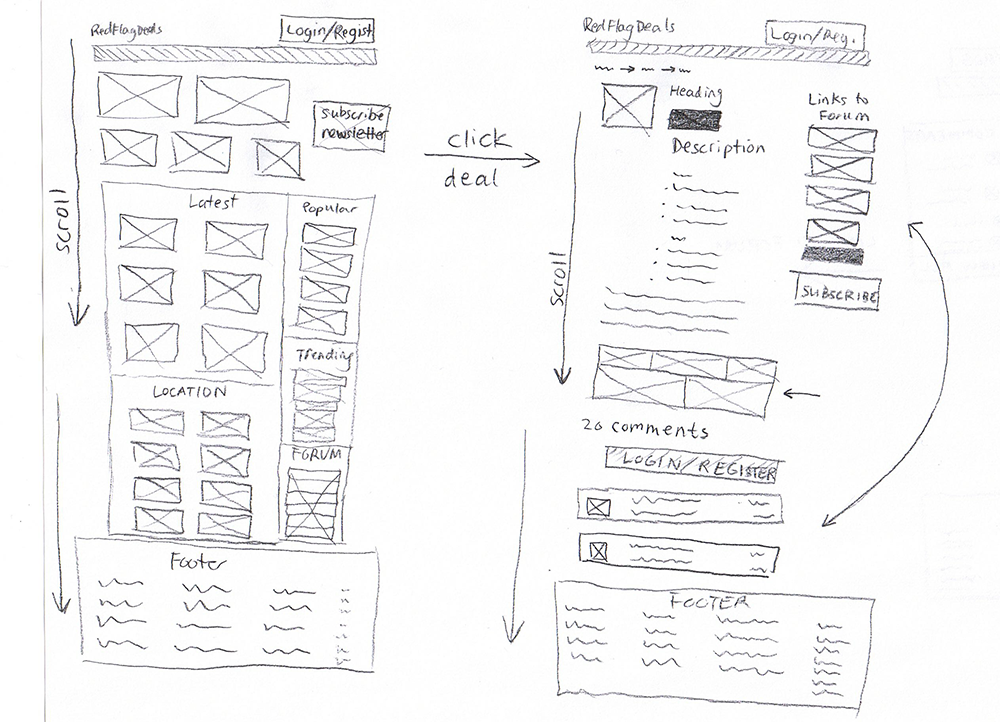 RedFlagDeals
Login/Regist
subscribe
newsletter
scroll
Latest
Popular
Trending
LOCATION
FORUM
Footer
click
deal
RedFlagDeals
Login/Reg.
Heading
Description
Links to
Forum
SUBSCRIBE
scroll
20 comments
LOGIN/REGISTER
FOOTER